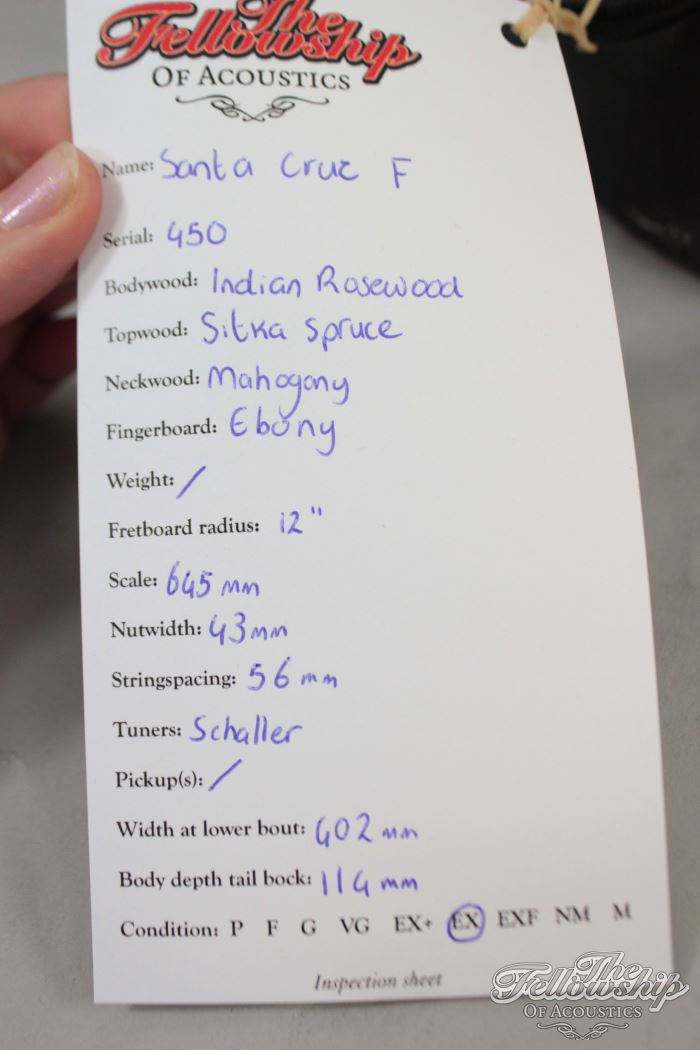 The
Fellowship
OF ACOUSTICS
Name: Santa Cruz F
Serial: 450
Bodywood: Indian Rosewood
Topwood: Sitka Spruce
Neckwood: Mahogony
Fingerboard: Ebony
Weight: /
Fretboard radius: 12"
Scale: 645 mm
Nutwidth: 43mm
Stringspacing: 56 mm
Tuners: Schaller
Pickup(s): /
Width at lower bout: 402 mm
Body depth tail bock: 114 mm
Condition: P F G VG EX+ EX EXF NM M
Inspection sheet
The
Fellowship
OF ACOUSTICS